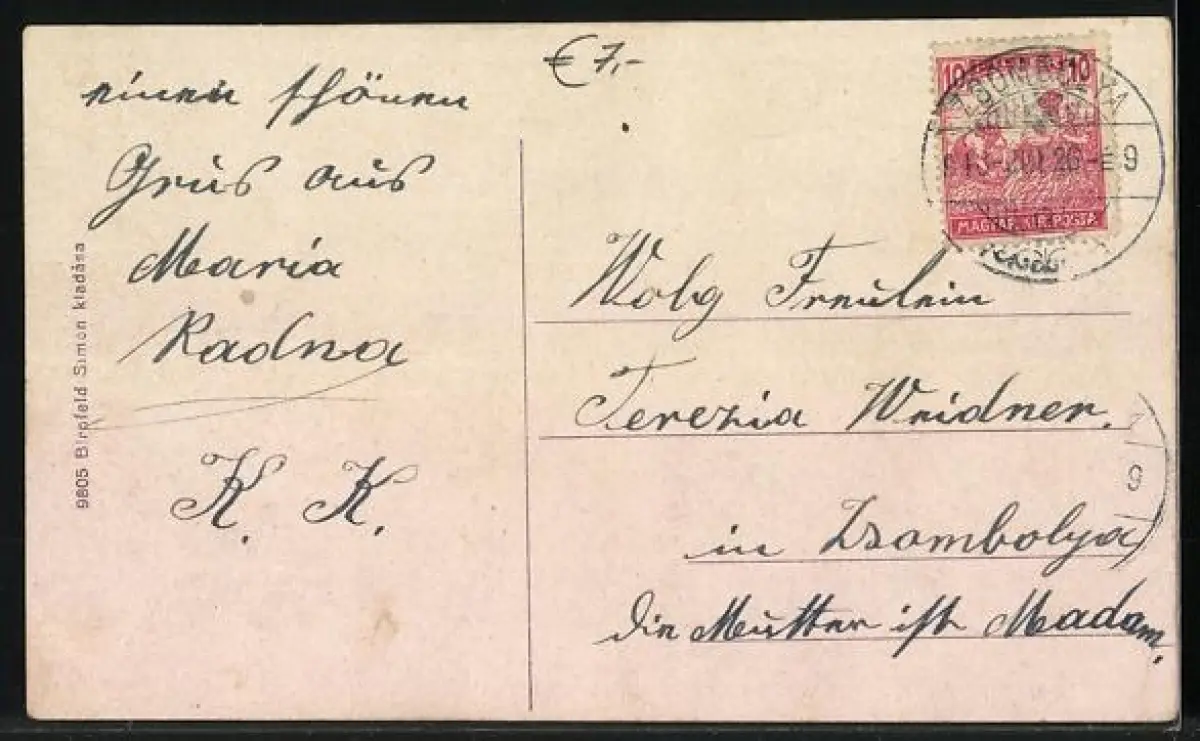 einen schönen
Grus aus
Maria
Radna
K. K.
9805 Birpfeld Simon kiadása
€ 7,-
10 10
MAGYAR KIR. POSTA
26
9
Wolg Freulein
Terezia Weidner.
in Zsombolya
die Mutter ist Madam.
9